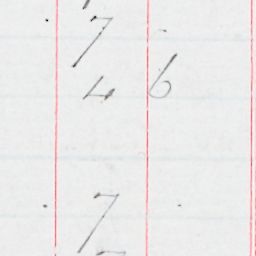 7
4 6
7